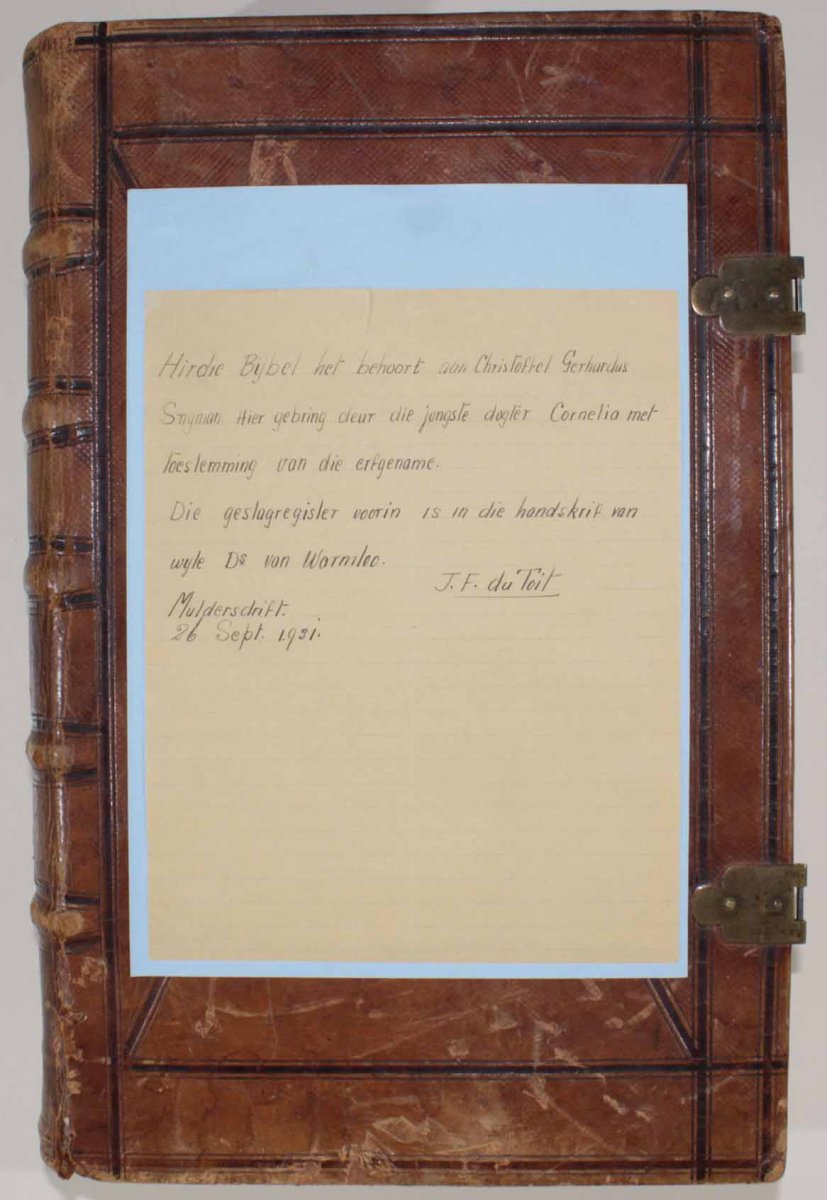 Hirdie Bijbel het behoort aan Christoffel Gerhardus
Snyman Hier gebring deur die jongste dogter Cornelia met
toestemming van die erfgename.
Die geslagregister voorin is in die handskrif van
wyle Ds van Warmloo.
J. F. du Toit
Muldersdrift.
26 Sept. 1931.